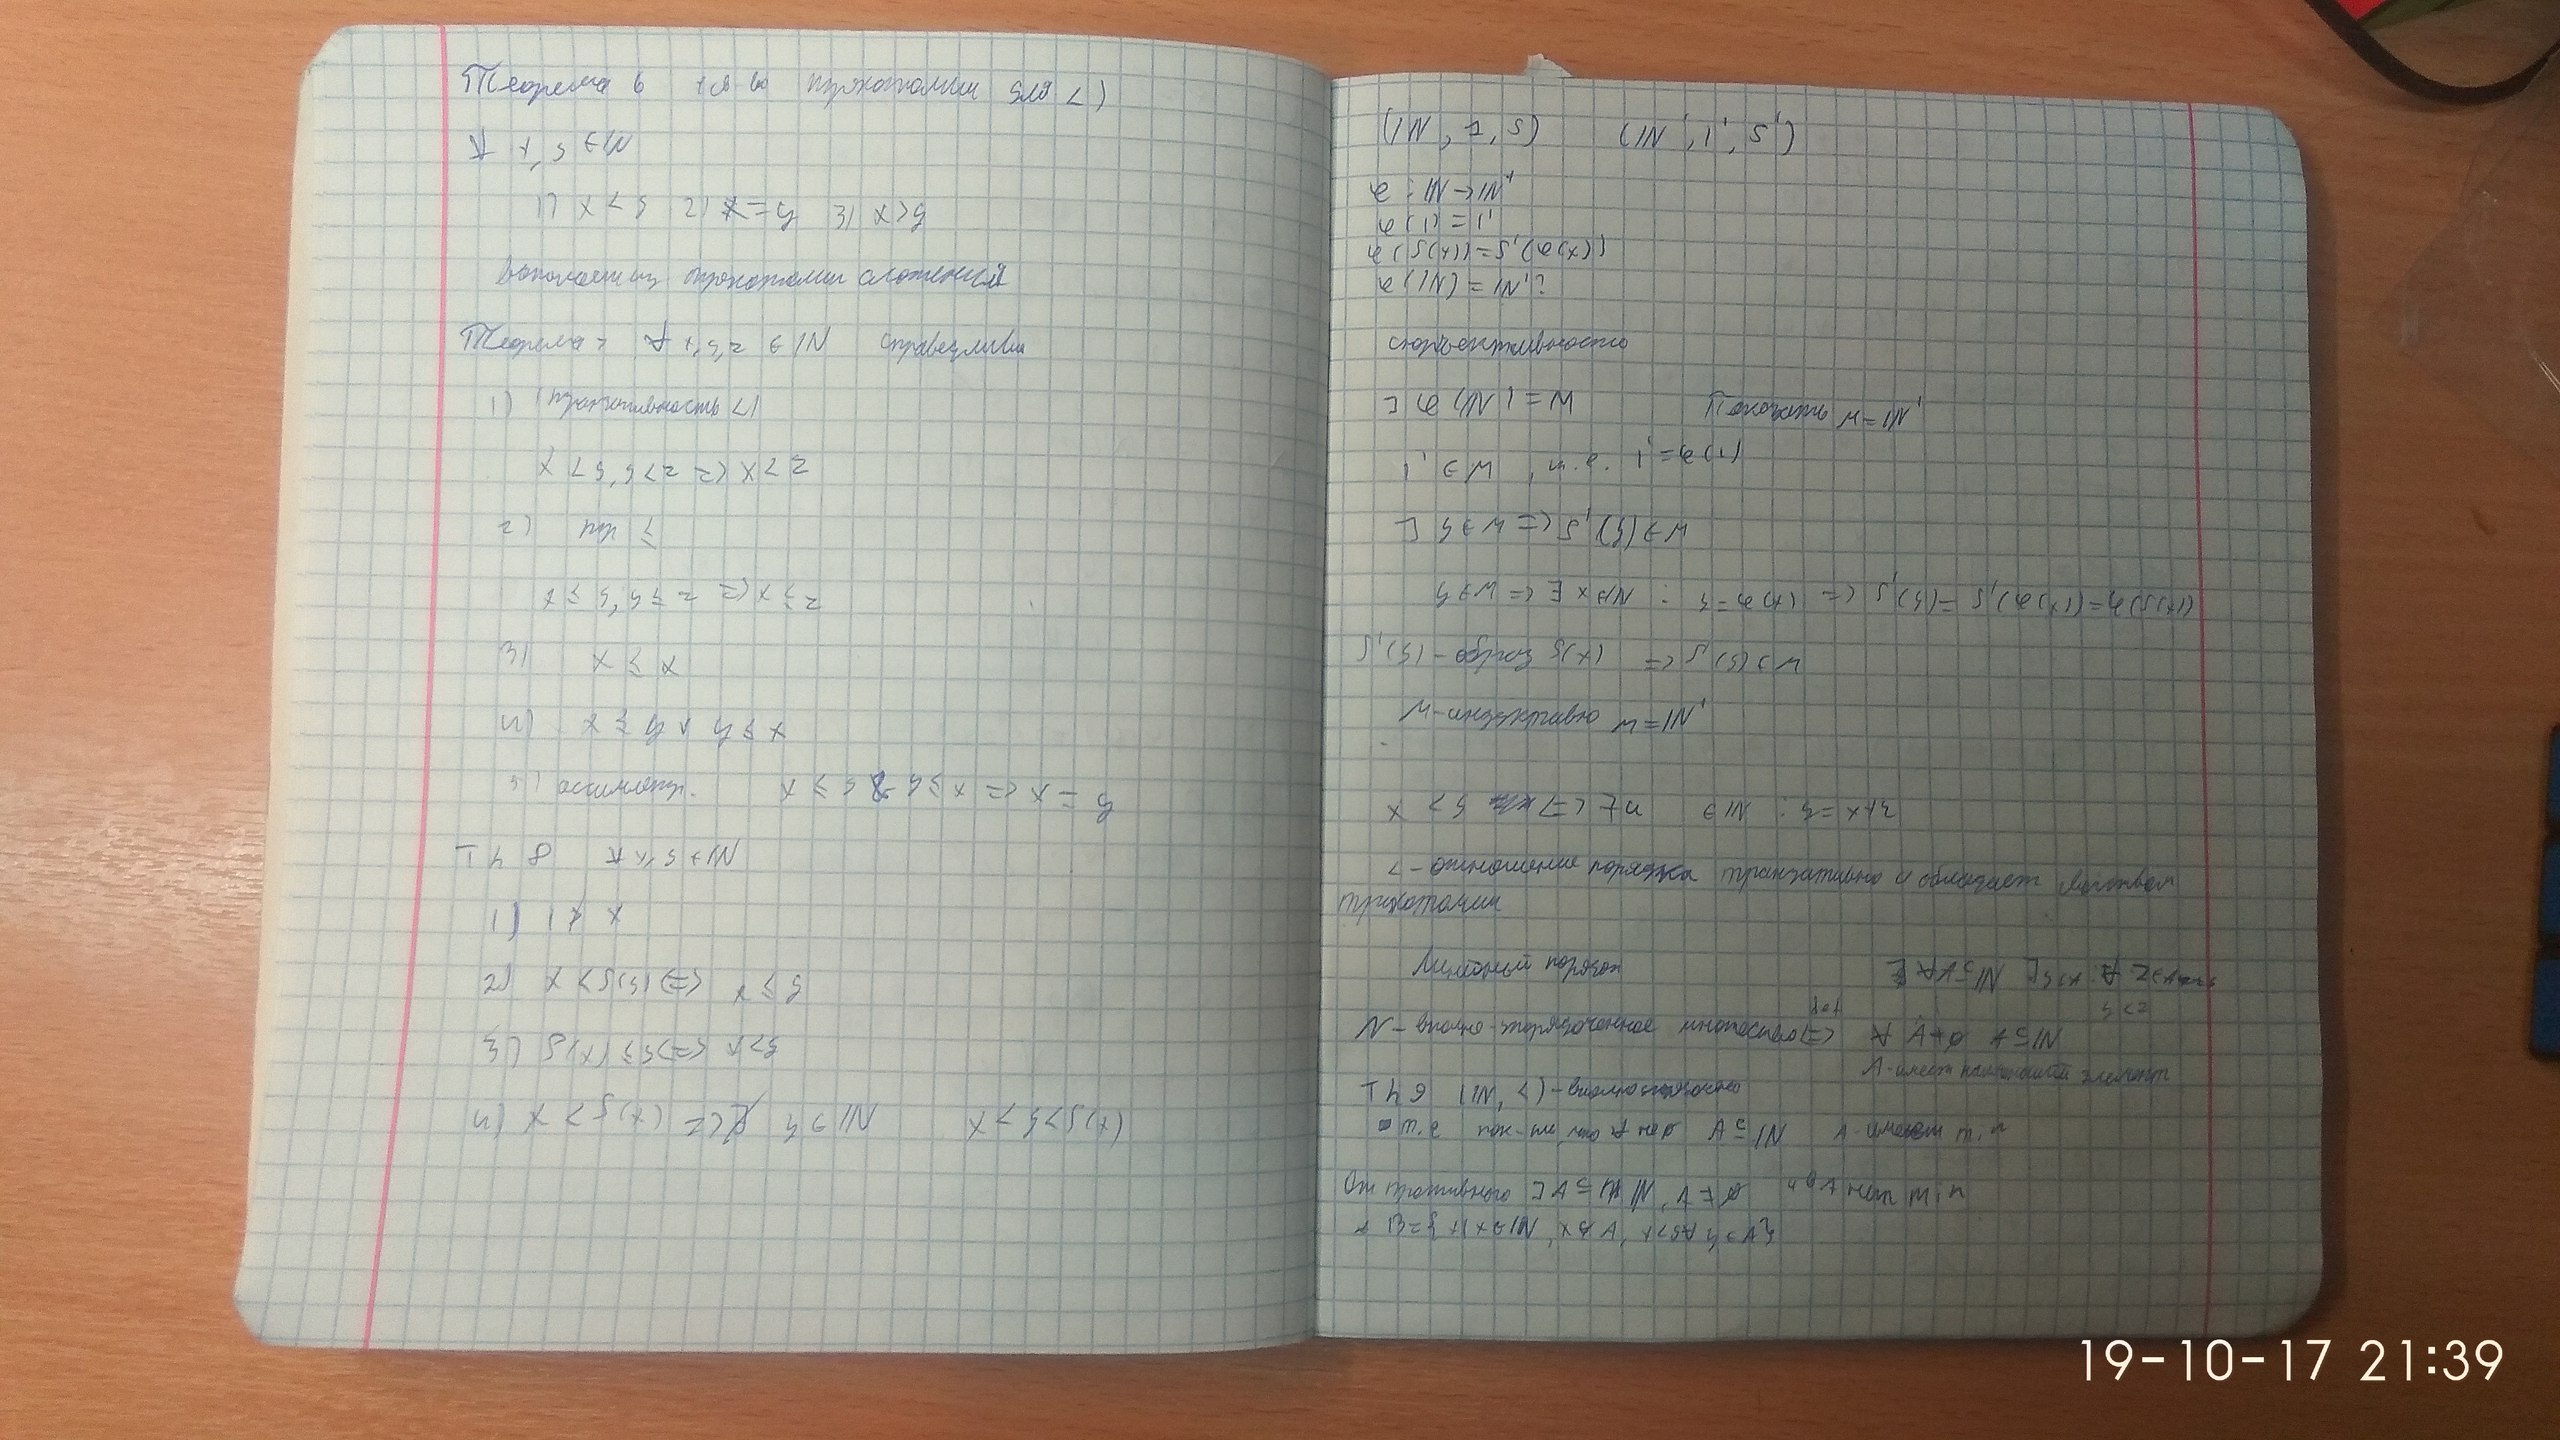 Теорема 6 (св-во трихотомии для <)
∀ x, y ∈ ℕ
1) x < y 2) x = y 3) x > y
из трихотомии сложения
Теорема 7 ∀ x, y, z ∈ ℕ справедливы
1) (транзативность <)
x < y, y < z => x < z
2) ≤
x ≤ y, y ≤ z => x ≤ z
3) x ≤ x
4) x ≤ y ∨ y ≤ x
5) ассиметр. x ≤ y & y ≤ x => x = y
Th 8 ∀ x, y ∈ ℕ
1)
2) x < S(y) <=> x ≤ y
3) S(x) ≤ y <=> x < y
4) x < S(x) => ∄ y ∈ ℕ x < y < S(x)
(ℕ, 1, S) (ℕ', 1', S')
φ : ℕ → ℕ'
φ(1) = 1'
φ(S(x)) = S'(φ(x))
φ(ℕ) = ℕ'?
сюръективность
] φ(ℕ) = M Показать M = ℕ'
1' ∈ M, т.е. 1' = φ(1)
] y ∈ M => S'(y) ∈ M
y ∈ M => ∃ x ∈ ℕ : y = φ(x) => S'(y) = S'(φ(x)) = φ(S(x))
S'(y) - образ S(x) => S'(y) ∈ M
M - индуктивно M = ℕ'
x < y <=> ∃ u ∈ ℕ :
< - отношение порядка транзативно и обладает свойством
трихотомии
Линейный порядок
N - вполне-упорядоченное множество <=> def ∀ A ≠ ∅ A ⊆ ℕ
A - имеет наименьший элемент
Th 9 (ℕ, <) - вполне
т.е. A ⊆ ℕ A - имеет min
От противного ] A ⊆ ℕ, A ≠ ∅ в A нет min
B = { x | x ∈ ℕ,
19-10-17 21:39